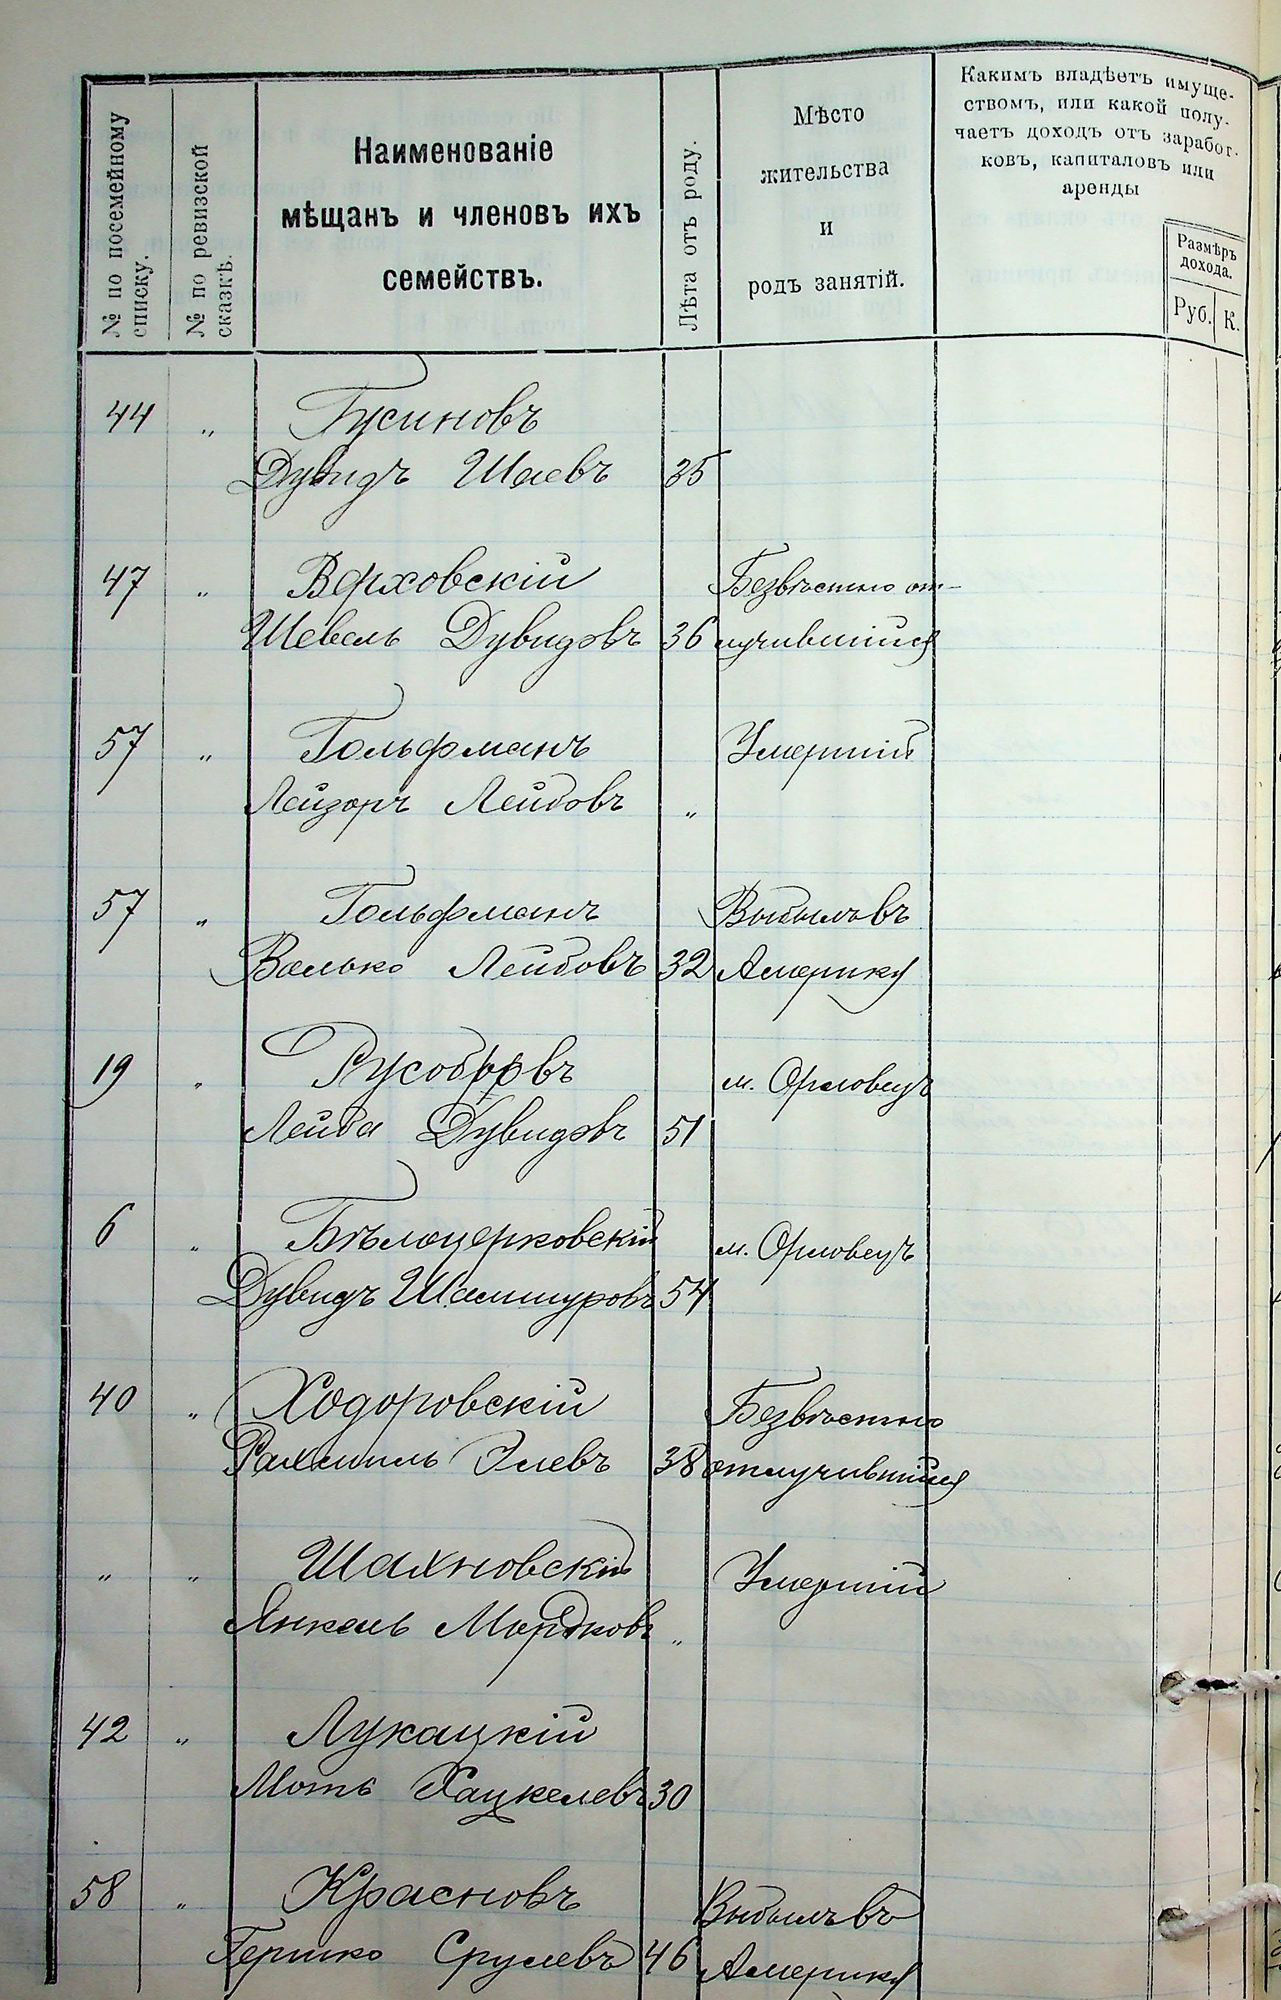 № по посемейному
списку.
№ по ревизской
сказкѣ.
Наименованіе
мѣщанъ и членовъ ихъ
семействъ.
Лѣта отъ роду.
Мѣсто
жительства
и
родъ занятій.
Какимъ владѣетъ имуще-
ствомъ, или какой полу-
чаетъ доходъ отъ заработ-
ковъ, капиталовъ или
аренды
Размѣръ
дохода.
Руб. К.
44 „ Гусиновъ
Дувидъ Шаевъ 35
47 „ Верховскій Безвѣстно от-
Шевель Дувидовъ 36 лучившійся
57 „ Гольфманъ Умершій
Лейзоръ Лейбовъ „
57 „ Гольфманъ Выбылъ въ
Валько Лейбовъ 32 Америку
19 „ Русобровъ м. Орловецъ
Лейба Дувидовъ 51
6 „ Бѣлоцерковскій м. Орловецъ
Дувидъ Шамшуровъ 54
40 „ Ходоровскій Безвѣстно
Рахмиль Элевъ 38 отлучившійся
„ „ Шахновскій Умершій
Янкель Мордковъ „
42 „ Лукацкій
Моть Хацкелевъ 30
58 „ Красновъ Выбылъ въ
Гершко Срулевъ 46 Америку